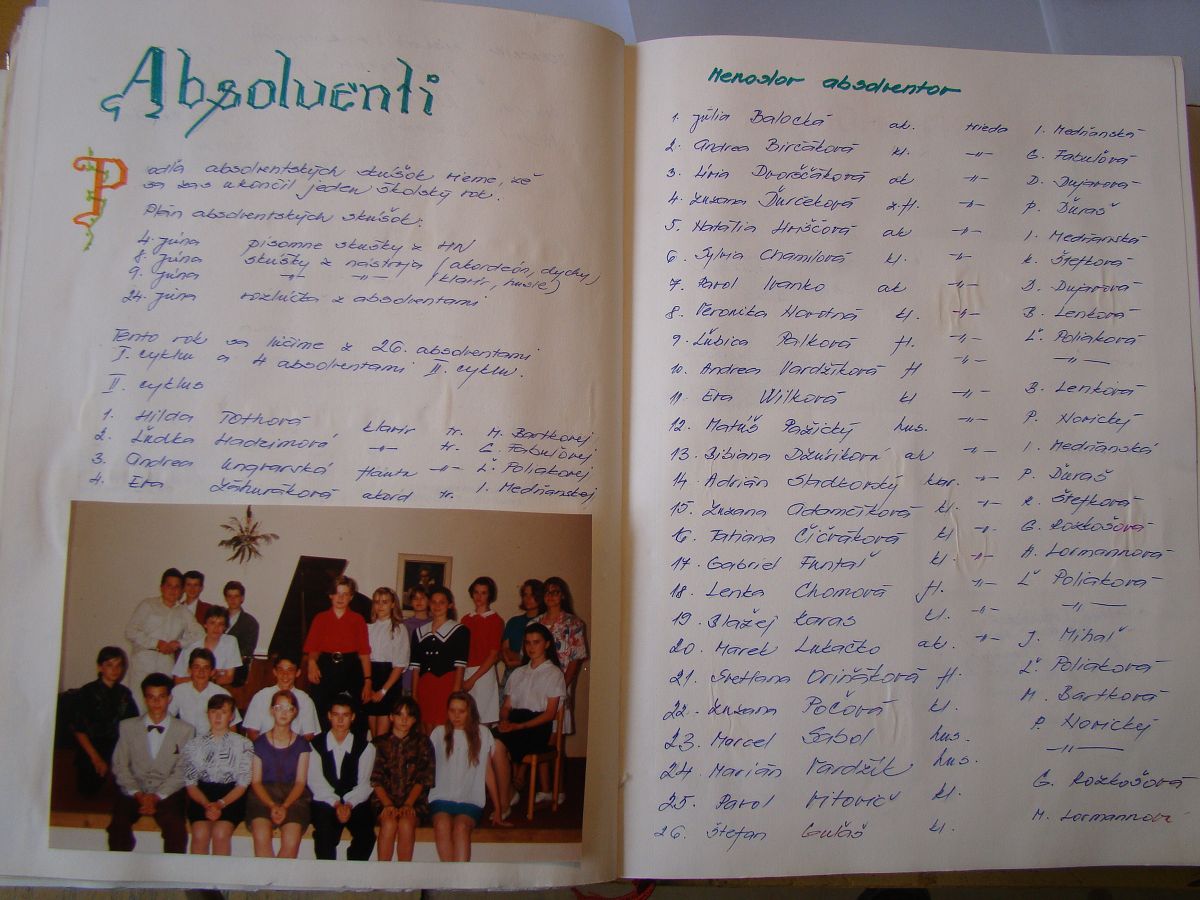 Absolventi
Podľa absolventských skúšok vieme, že
sa zas ukončil jeden školský rok.
Plán absolventských skúšok:
4. júna písomne skušky z HN
8. júna skušky z nástroja (akordeón, dychy,
9. júna -"- -"- klavír, husle)
24. júna rozlúčka z absolventami
Tento rok sa lúčime z 26. absolventami
I. cyklu a 4 absolventami II. cyklu.
II. cyklus
1. Hilda Tóthová klavír tr. M. Bartkovej
2. Ľudka Hadzimová -"- tr. G. Fabuľovej
3. Andrea Ungvarská flauta -"- Ľ. Poliakovej
4. Eva Záhuráková akord tr. I. Medňanskej
Menoslov absolventov
1. Júlia Balocká ak. trieda I. Medňanská
2. Andrea Birčáková kl. -"- G. Fabuľová
3. Lívia Dvorščáková ak -"- D. Dujavová
4. Zuzana Ďurčeková z.fl. -"- P. Ďuraš
5. Natália Hriščová ak -"- I. Medňanská
6. Sylvia Chamilová kl. -"- K. Štefková
7. Pavol Ivanko ak -"- D. Dujavová
8. Veronika Novotná kl. -"- B. Lenková
9. Ľubica Palková fl. -"- Ľ. Poliaková
10. Andrea Vardžíková fl -"- -"-
11. Eva Wilková kl -"- B. Lenková
12. Matúš Pažický hus. -"- P. Novický
13. Bibiana Džuriková ak -"- I. Medňanská
14. Adrián Sladkovský -"- P. Ďuraš
15. Zuzana Adamčíková kl. -"- K. Štefková
16. Tatiana Čičváková kl -"- G. Rozkošová
17. Gabriel Funtaľ kl. -"- M. Lormannová
18. Lenka Chomová fl. -"- Ľ. Poliaková
19. Blažej Karas kl. -"- -"-
20. Marek Lukačko ak. -"- J. Mihaľ
21. Svetlana Oriňáková fl. Ľ. Poliaková
22. Zuzana Počová kl. M. Bartková
23. Marcel Sabol hus. P. Novický
24. Marián Vardžík hus. -"-
25. Pavol Vitovič kl. G. Rozkošová
26. Štefan Guľáš kl. M. Lormannová